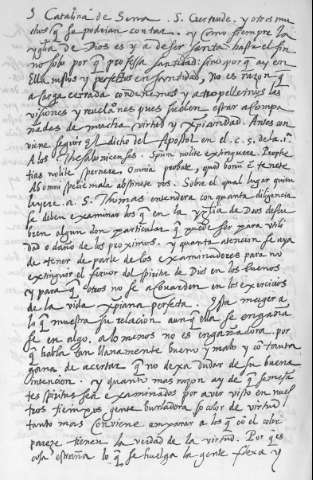 S Catalina de Sena. S. Gertrude. y otros mu
chos q̃ se podrian contar. y como siempre la
yglia de Dios es y a de ser santa hasta el fin
no solo por q̃ professa santidad: sino por q̃ ay en
ella justos y perfectos en santidad, no es razon q̃
a carga cerrada condenemos y atropellemos las
visiones y revelaçiones pues suelen estar acompa
ñadas de mucha virtud y xpiandad. Antes con
viene seguir el dicho del Apostol en el c. 5. de la 1ª
A los Thesalonicenses. Spum nolite extinguere. Prophe
tias nolite spernere. Omnia probate, quod bonum est tenete.
Ab omni specie mala abstinete vos. Sobre el qual lugar quien
leyere a S. Thomas entendera con quanta diligençia
se deben examinar los q̃ en la yglia de Dios descu
bren algun don particular q̃ puede ser para utili
dad o daño de los proximos. y quanta atencion se aya
de tener de parte de los examinadores para no
extinguir el fervor del spiritu de Dios en los buenos
y para q̃ otros no se acovarden en los exerciçios
de la vida xpiana perfecta. Esta muger a
lo q̃ muestra su relacion aunq̃ ella se engañe
en algo, a lo menos no es engañadora. por
q̃ habla tan llanamente bueno y malo y cõ tanta
gana de acertar q̃ no dexa dudar de su buena
intencion. y quanto mas razon ay de q̃ semejan
tes spiritus seã examinados por aver visto en nues
tros tiempos gente burladora so color de virtud.
tanto mas conviene amparar a los q̃ cõ el color
pareze tienen la verdad de la virtud. Por q̃ es
cosa estraña lo q̃ se huelga la gente floxa y